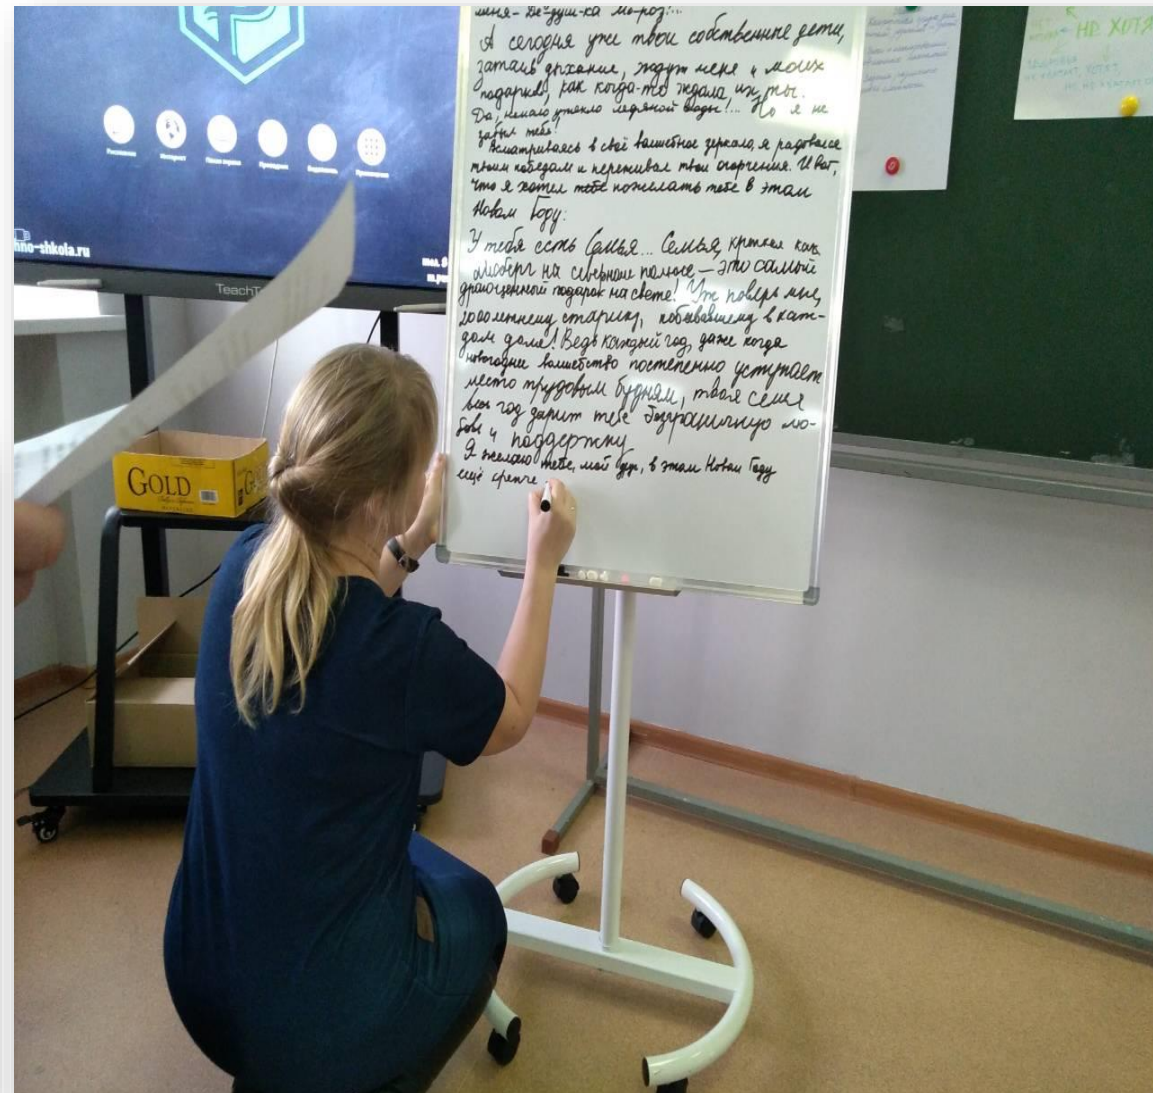 меня - Де-душ-ка Мо-роз!...
А сегодня уже твои собственные дети,
затаив дыхание, ждут меня и моих
подарков, как когда-то ждала их ты.
Да, немало утекло ледяной воды!... Но я не
забыл тебя!
Всматриваясь в своё волшебное зеркало, я радовался
твоим победам и переживал твои огорчения. И вот,
что я хотел тебе пожелать тебе в этом
Новом Году:
У тебя есть Семья... Семья, крепкая как
айсберг на северном полюсе - это самый
драгоценный подарок на свете! Уж поверь мне,
2000летнему старику, побывавшему в каж-
дом доме! Ведь каждый год, даже когда
новогоднее волшебство постепенно уступает
место трудовым будням, твоя семья
весь год дарит тебе безграничную лю-
бовь и поддержку
Я желаю тебе, мой друг, в этом Новом Году
ещё крепче
hno-shkola.ru
тел. 8
TeachT
Интернет
Проводник
GOLD
НЕ ХОТЯ